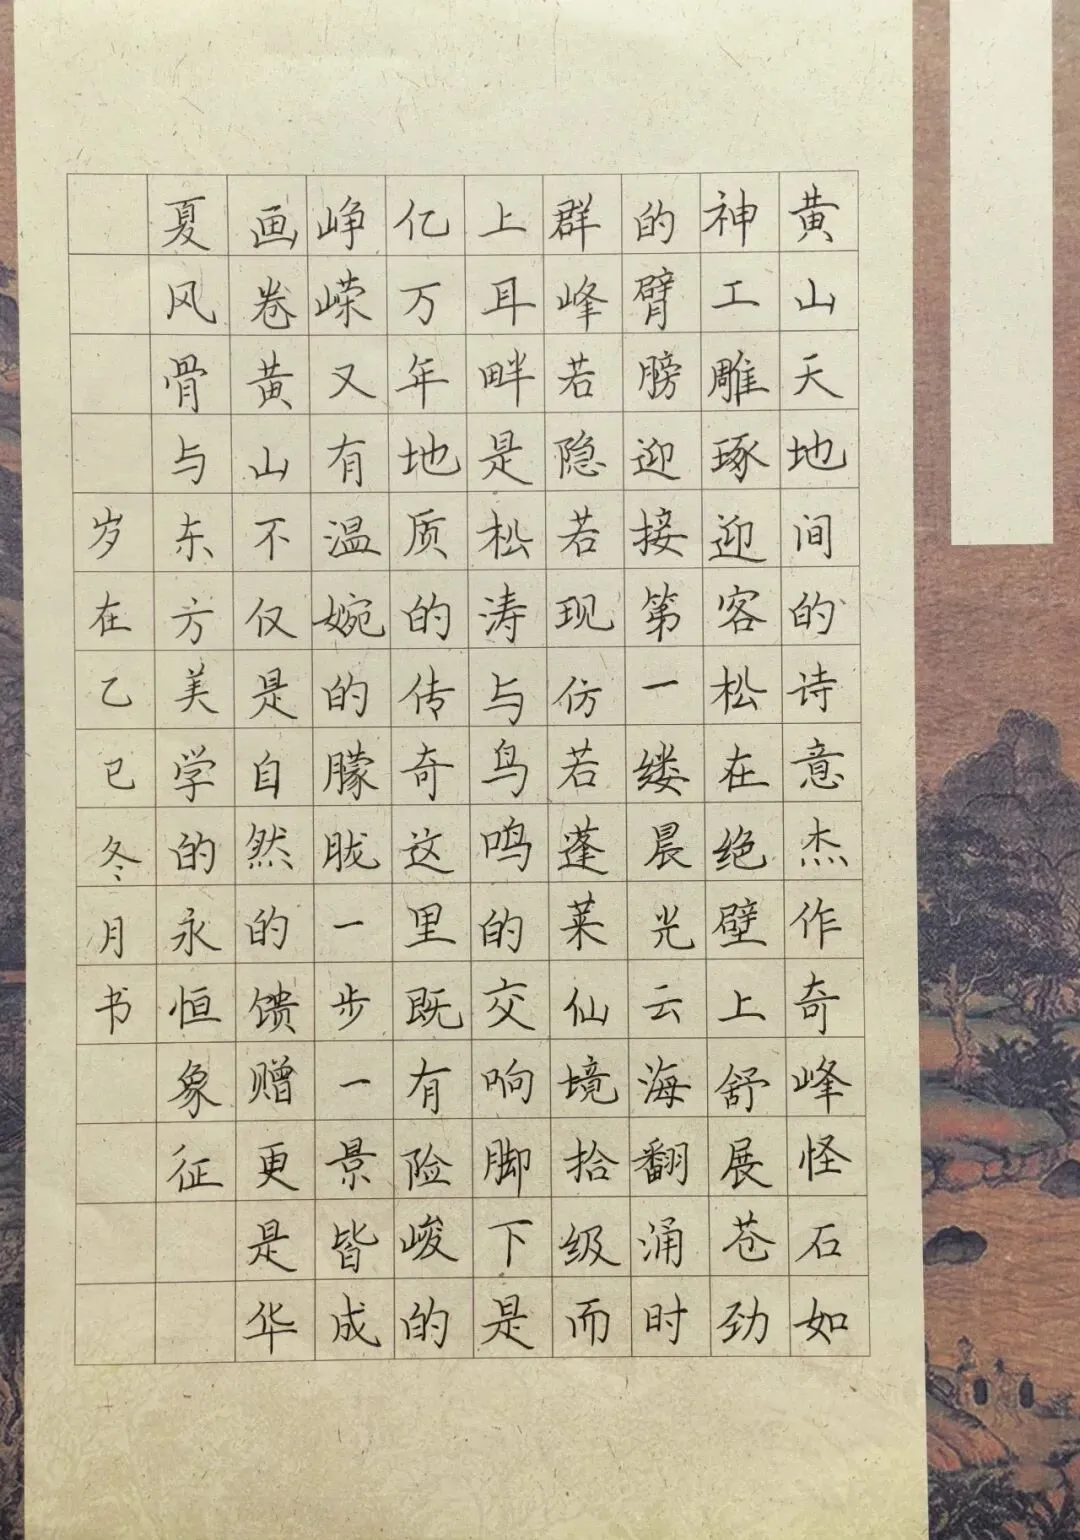 黄山天地间的诗意杰作奇峰怪石如
神工雕琢迎客松在绝壁上舒展苍劲
的臂膀迎接第一缕晨光云海翻涌时
群峰若隐若现仿若蓬莱仙境拾级而
上耳畔是松涛与鸟鸣的交响脚下是
亿万年地质的传奇这里既有险峻的
峥嵘又有温婉的朦胧一步一景皆成
画卷黄山不仅是自然的馈赠更是华
夏风骨与东方美学的永恒象征
岁在乙巳冬月书